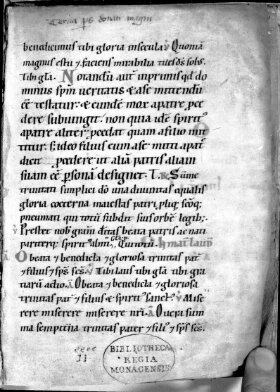 benedicimus tibi gloria in secula. Quoniā
magnus es tu & faciens mirabilia tu es dš̄ solus.
Tibi gła. Notandū aut̄ inprimis qđ do
minus spm̄ ueritatis & a se mittendū
ēē testatur. & eundē mox a patre. pce
dere subiungit. non quia idē spirit'
a patre aliter. pcedat quam a filio mit
titur. Sed ideo filius eum a se mitti a pat̄
dicit pcedere ut aliā patris aliam
suam ēē psonā designet.
trinitati simplici dō una diuinitas equalis
gloria coeterna maiestas patri. pliq; scōq;
pneumati qui totū subdit suis orbē legib;
Prestet nob gratiam deitas beata patris ac nati
pariterq; spirit' almi
O beata & benedicta & gloriosa trinitas pat̄
& filius & sps̄ scs̄. Tibi laus tibi gła tibi gra
tiarū actio. O beata & benedicta & gloriosa
trinitas pat̄ & filius & spirit' sanct'. Mise
rere miserere miserere nr̄i. O uera sum
ma sempiterna trinitas pater & fili' & sps̄ scs̄.
BIBLIOTHECA
REGIA
MONACENSIS